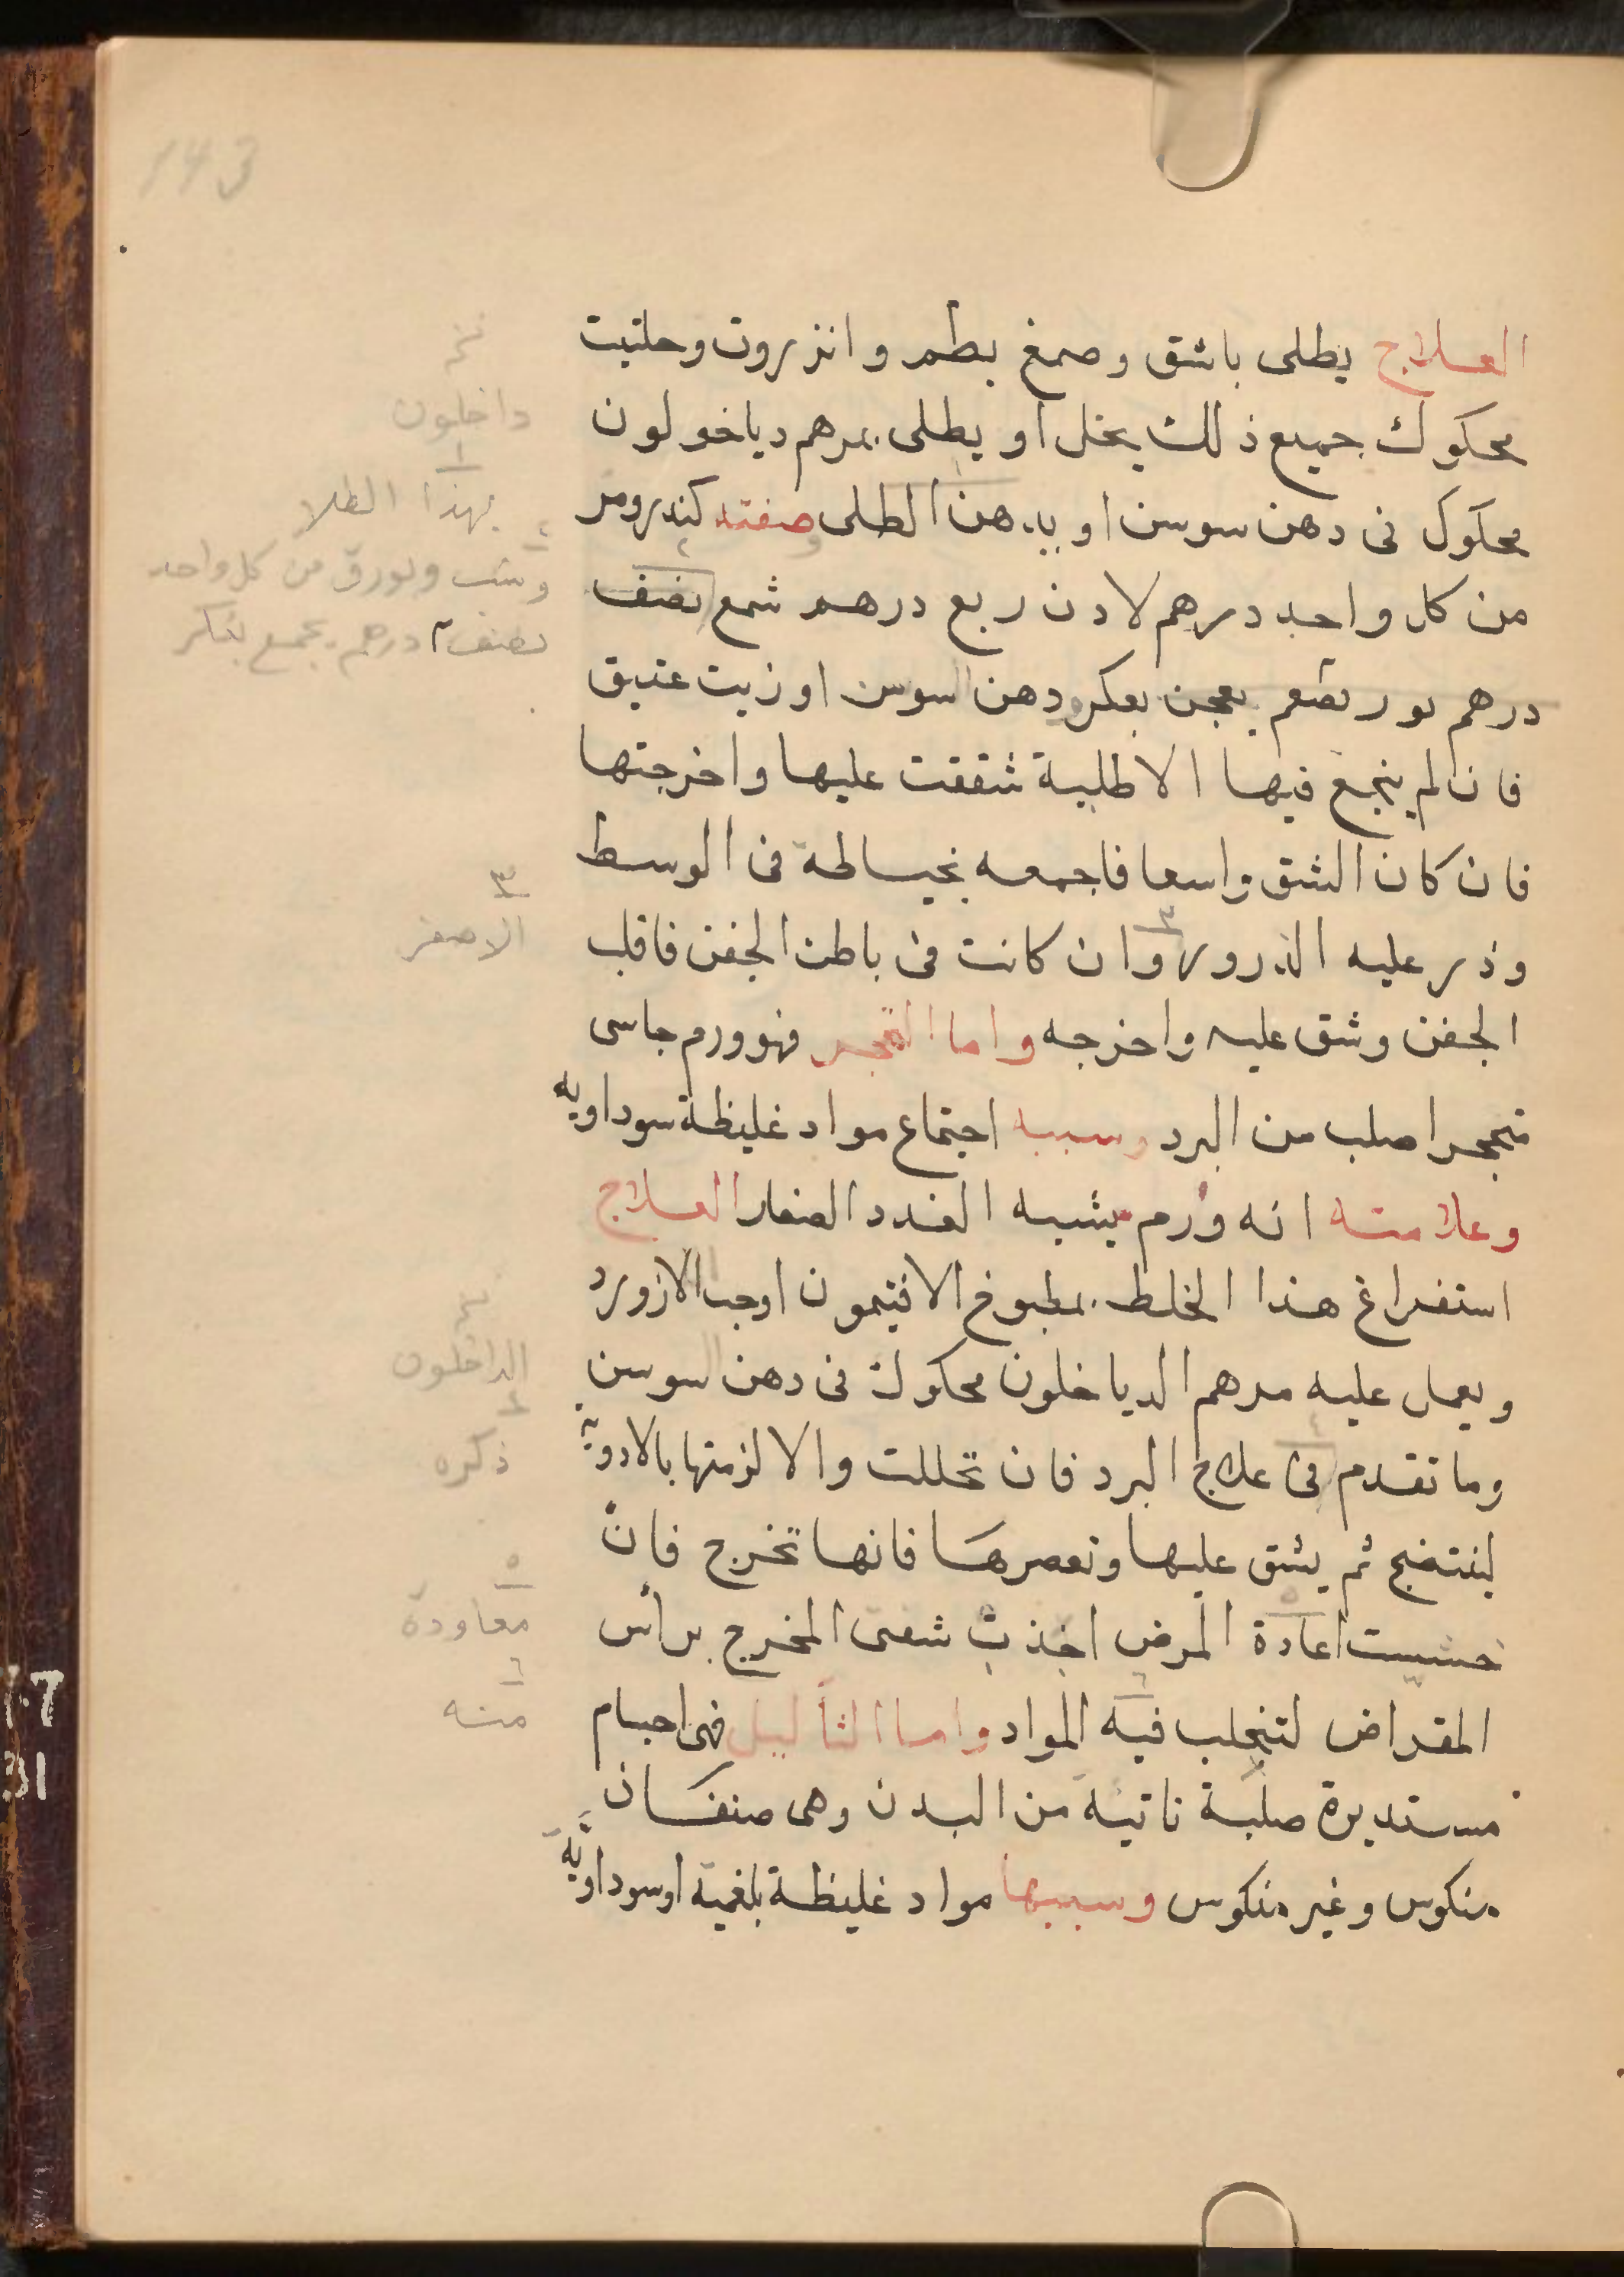 143
العلاج يطلى باشق وصمغ بطم وانزروت وحلتيت
محكوك جميع ذلك بخل او يطلى بمرهم دياخولون
محكوك فى دهن سوسن او بدهن الطلى صفته كندر ومر
من كل واحد درهم لادن ربع درهم شمع نصف
درهم يعجن بعكر ودهن السوسن او زيت عتيق
فان لم ينجع فيها الاطلية شققت عليها واخرجتها
فان كان الشق واسعا فاجمعه بخياطة فى الوسط
وذر عليه الذرور وان كانت فى باطن الجفن فاقلب
الجفن وشق عليه واخرجه واما التحجر فهو ورم جاسى
متحجر اصلب من البرد وسببه اجتماع مواد غليظة سوداويه
وعلامته انه ورم يشبه الغدد الصغار العلاج
استفراغ هذا الخلط بمطبوخ الافتيمون اوحب الازورد
ويعمل عليه مرهم الدياخلون محكوك فى دهن السوسن
وما تقدم فى علاج البرد فان تحللت والا لزمتها بالادوية
لينتضج ثم يشق عليها وتعصرها فانها تخرج فان
خشيت اعادة المرض اخذت شفتى المخرج براس
المقراض لتنجلب فيه المواد واما الثآليل فهى اجسام
مستديرة صلبة ناتية من البدن وهى صنفان
منكوس وغير منكوس وسببها مواد غليظة بلغمية اوسوداوية
داخلون
١
بهذا الطلا
٢
وشب وبورق من كل واحد
نصف درهم يجمع بعكر
٣
الاصفر
الداخلون
٤
ذكره
٥
معاودة
٦
منه